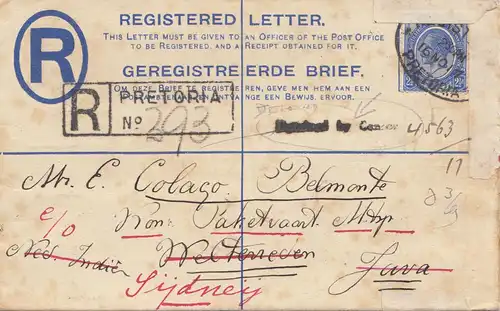 REGISTERED LETTER.
THIS LETTER MUST BE GIVEN TO AN OFFICER OF THE POST OFFICE
TO BE REGISTERED, AND A RECEIPT OBTAINED FOR IT.
R
GEREGISTREERDE BRIEF.
OM DEZE BRIEF TE REGISTREREN, GEVE MEN HEM AAN EEN
EEN BEWIJS, ERVOOR.
R PRETORIA
No 293
PRETORIA
Detained by
4563
11
Mr. E. Colaço Belmonte
c/o Kon. Paketvaart Mtpy
Ned. Indië Weltevreden Java
Sijdney